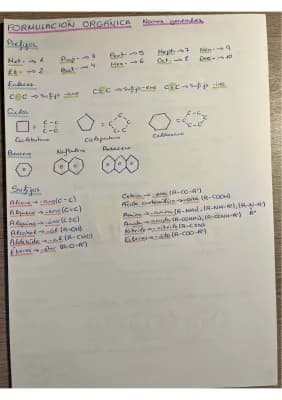 FORMULACIÓN ORGÁNICA Normas generales
Prefijos
Met- → 1 Prop- → 3 Pent- → 5 Hept- → 7 Non- → 9
Et- → 2 But- → 4 Hex- → 6 Oct- → 8 Dec- → 10
Enlaces
C-C → Sufijo -ano C=C → Sufijo -eno C≡C → Sufijo -ino
Ciclos
Ciclobutano Ciclopentano Ciclohexano
Benceno Naftaleno
Sufijos
Alcano → -ano (C-C)
Alqueno → -eno (C=C)
Alquino → -ino (C≡C)
Alcohol → -ol (R-OH)
Aldehído → -al (R-CHO)
Éteres → -éter (R-O-R')
Cetona → -ona (R-CO-R')
Ácido carboxílico → -oico (R-COOH)
Amina → -amina (R-NH₂), (R-NH-R'), (R-N-R')
R''
Amida → -amida
Nitrilo → -nitrilo (R-C≡N)
Ésteres → -ato (R-COO-R')